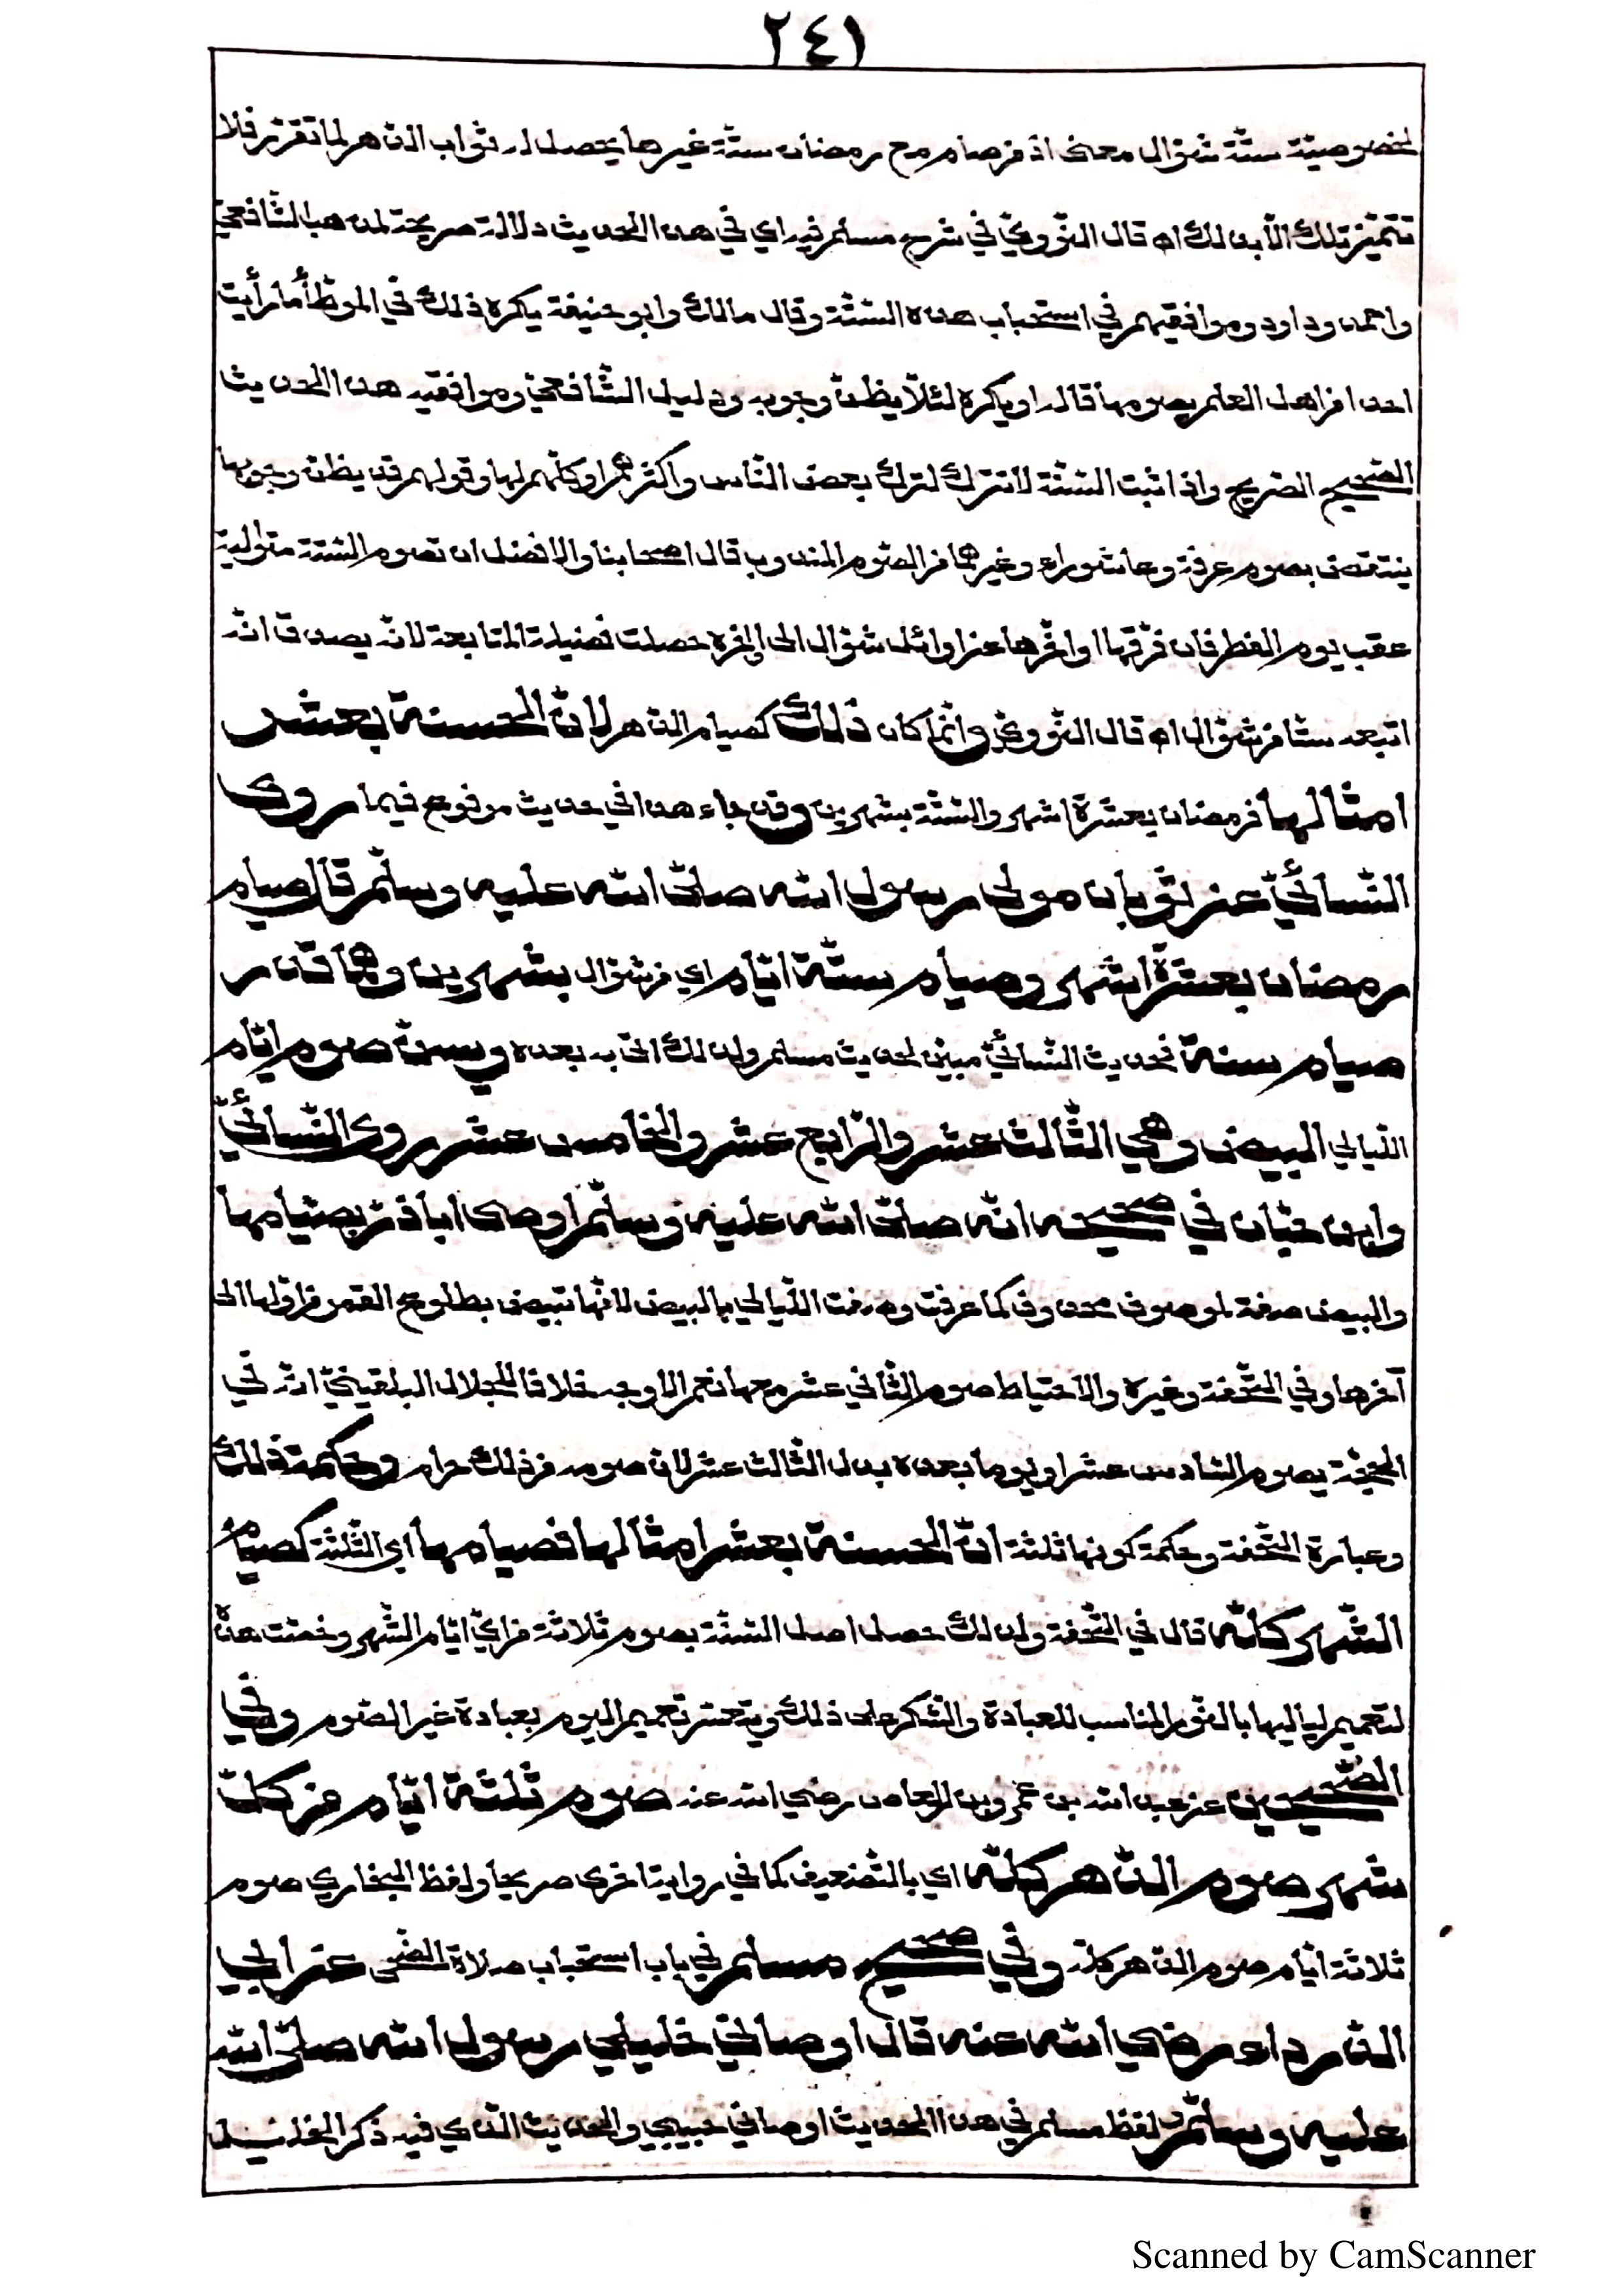 ٢٤١
لخصوصيّة ستّة شوّال معنى اذ من صام مع رمضان ستّة غيرها يحصل له ثواب الدّهر لما تقرّر فلا
تتميّز تلك الّا بذلك اه قال النّوويّ في شرح مسلم فيه اي في هذا الحديث دلالة صريحة لمذهب الشّافعيّ
واحمد وداود وموافقيهم في استحباب هذه السّتّة وقال مالك وابو حنيفة يكره ذلك في الموطّأ ما رأيت
احدا من اهل العلم يصومها قالوا ويكره لئلّا يظنّ وجوبه ودليل الشّافعيّ وموافقيه هذا الحديث
الصّحيح الصّريح واذا ثبت السّنّة لا تترك لترك بعض النّاس واكثرهم او كلّهم لها وقولهم قد يظنّ وجوبها
ينتقض بصوم عرفة وعاشوراء وغيرهما من الصّوم المندوب قال اصحابنا والافضل ان تصوم السّتّة متوالية
عقب يوم الفطر فان فرّقها او اخّرها عن اوائل شوّال الى اخره حصلت فضيلة المتابعة لانّه يصدق انّه
اتبعه ستّا من شوّال اه قال النّوويّ وانّما كان ذلك كصيام الدّهر لانّ الحسنة بعشر
امثالها فرمضان بعشرة اشهر والسّتّة بشهرين وقد جاء هذا في حديث مرفوع فيما روى
النّسائيّ عن ثوبان مولى رسول الله صلّى الله عليه وسلّم قال صيام
رمضان بعشرة اشهر وصيام ستّة ايّام اي من شوّال بشهرين وهما قدر
صيام سنة فحديث النّسائيّ مبيّن لحديث مسلم ولذلك اتى به بعده ويسنّ صوم ايّام
اللّيالي البيض وهي الثّالث عشر والرّابع عشر والخامس عشر روى النّسائيّ
وابن حبّان في صحيحه انّه صلّى الله عليه وسلّم اوصى ابا ذرّ بصيامها
والبيض صفة لموصوف محذوف كما عرفت وصفت اللّيالي بالبيض لانّها تبيض بطلوع القمر من اوّلها الى
آخرها وفي التّحفة وغيره والاحتياط صوم الثّاني عشر معها نعم الاوجه خلافا للجلال البلقينيّ انّه في
الحجّة يصوم السّادس عشر او يوما بعده بدل الثّالث عشر لان صومه من ذلك حرام وحكمة ذلك
وعبارة التّحفة وحكمة كونها ثلثة انّ الحسنة بعشر امثالها فصيامها اي الثّلثة كصيام
الشّهر كلّه قال في التّحفة ولذلك حصل اصل السّنّة بصوم ثلاثة من ايّ ايّام الشّهر وخصّت هذه
لتعميم لياليها بالنّور المناسب للعبادة والشّكر على ذلك ويتعسّر تعميم اليوم بعبادة غير الصّوم وفي
الصّحيحين عن عبد الله بن عمرو بن العاص رضي الله عنه صوم ثلثة ايّام من كلّ
شهر صوم الدّهر كلّه اي بالتّضعيف كما في رواية اخرى صريحا ولفظ البخاري صوم
ثلاثة ايّام صوم الدّهر كلّه وفي صحيح مسلم في باب استحباب صلاة الضّحى عن ابي
الدّرداء رضي الله عنه قال اوصاني خليلي رسول الله صلّى الله
عليه وسلّم لفظ مسلم في هذا الحديث اوصاني حبيبي والحديث الّذي فيه ذكر الخليل
Scanned by CamScanner